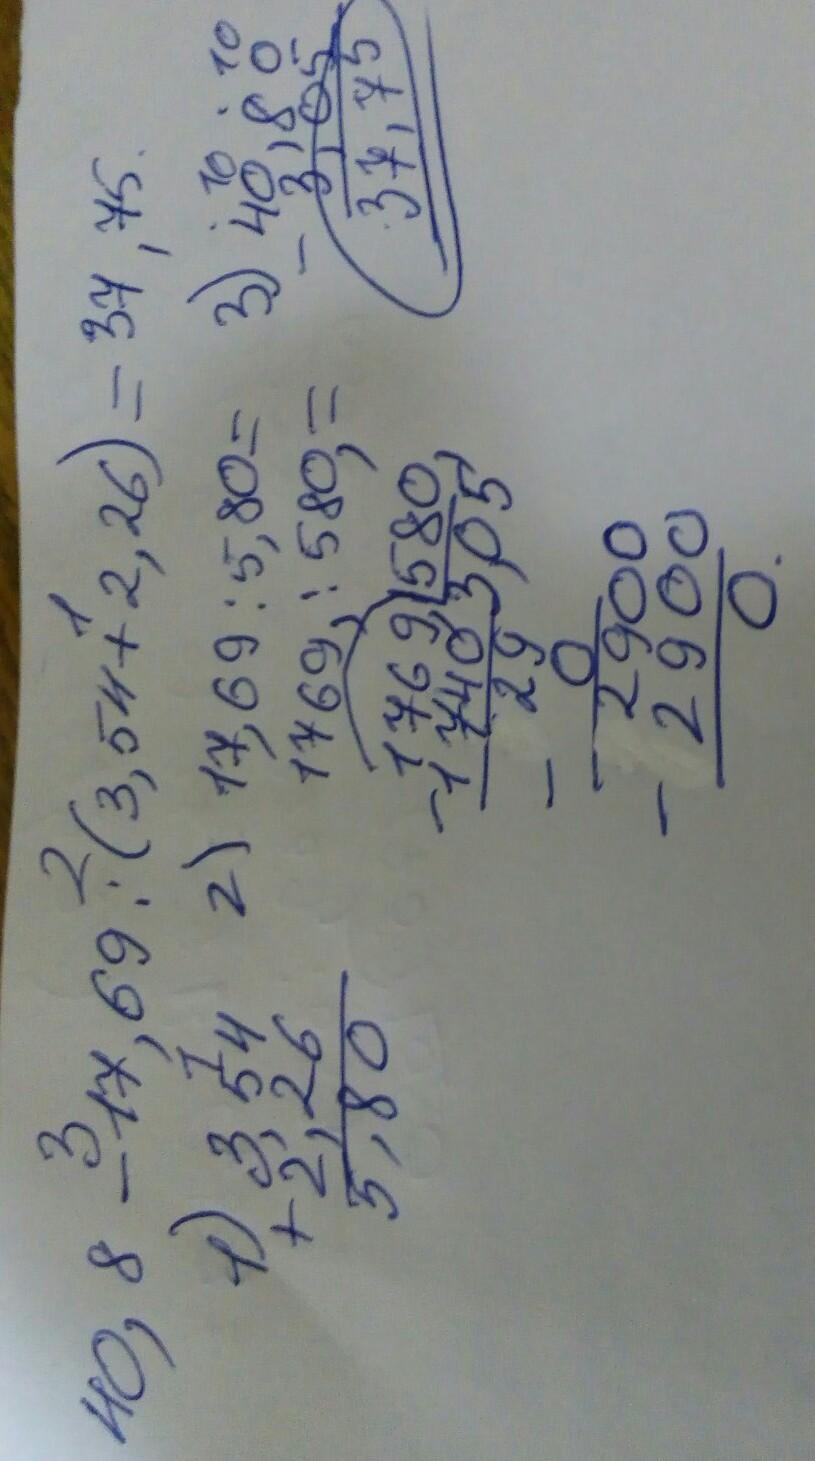 3 2 1
40,8 - 17,69 : (3,54 + 2,26) = 37,75.
1) 3,54
+ 2,26
5,80
2) 17,69 : 5,80 =
1769, : 580, =
1769, 580,
- 1740 3,05
29
- 0
2900
- 2900
0.
3) 40,80
- 3,05
37,75